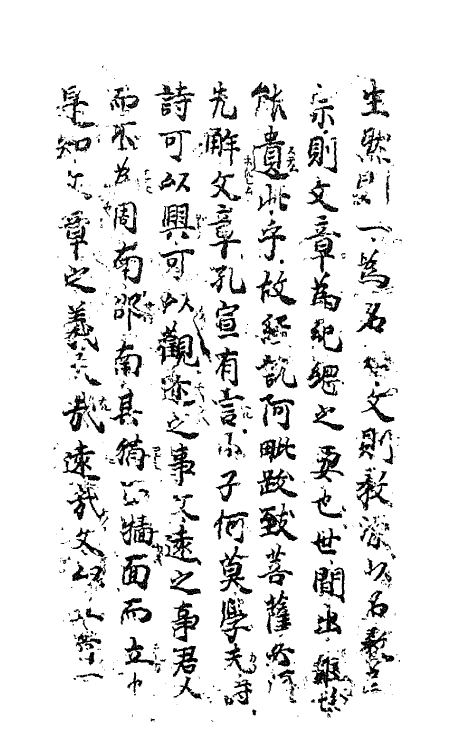 生然則一為名始文則教源以名教為
宗則文章為紀綱之要也世間出世誰
能遺此乎故經說阿毗跋致菩薩必須
先解文章孔宣有言小子何莫學夫詩
詩可以興可以觀迩之事父遠之事君人
而不為周南邵南其猶正牆面而立也
是知文章之義大哉遠哉文以